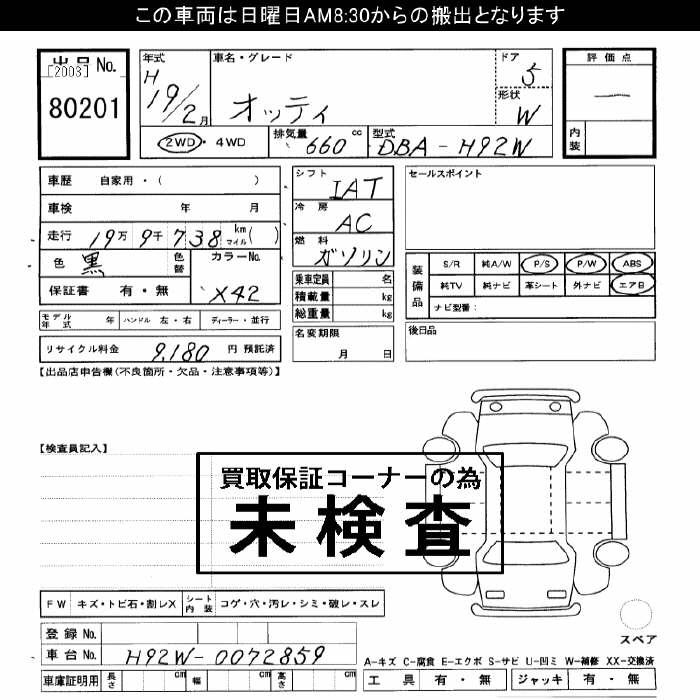 この車両は日曜日AM8:30からの搬出となります
出品No.
[2003]
80201
年式
H
19/2月
車名・グレード
オッティ
ドア
5
形状
W
2WD・4WD
排気量
660cc
型式
DBA-H92W
評価点
—
内装
車歴 自家用・( )
車検 年 月
走行 19万9千738 km マイル( )
色 黒
色替
カラーNo.
X42
保証書 有・無
モデル年式 年
ハンドル 左・右
ディーラー・並行
リサイクル料金 9,180 円 預託済
シフト
IAT
冷房
AC
燃料
ガソリン
乗車定員 名
積載量 kg
総重量 kg
名変期限
月 日
セールスポイント
装備品
S/R 純A/W P/S P/W ABS
純TV 純ナビ 革シート 外ナビ エアB
ナビ型番:
後日品
【出品店申告欄(不良箇所・欠品・注意事項等)】
【検査員記入】
買取保証コーナーの為
未検査
FW キズ・トビ石・割レX
シート内装 コゲ・穴・汚レ・シミ・破レ・スレ
スペア
登録No.
車台No. H92W-0072859
車庫証明用 長さ cm 幅 cm 高さ cm
A-キズ C-腐食 E-エクボ S-サビ U-凹ミ W-補修 XX-交換済
工具 有・無 ジャッキ 有・無